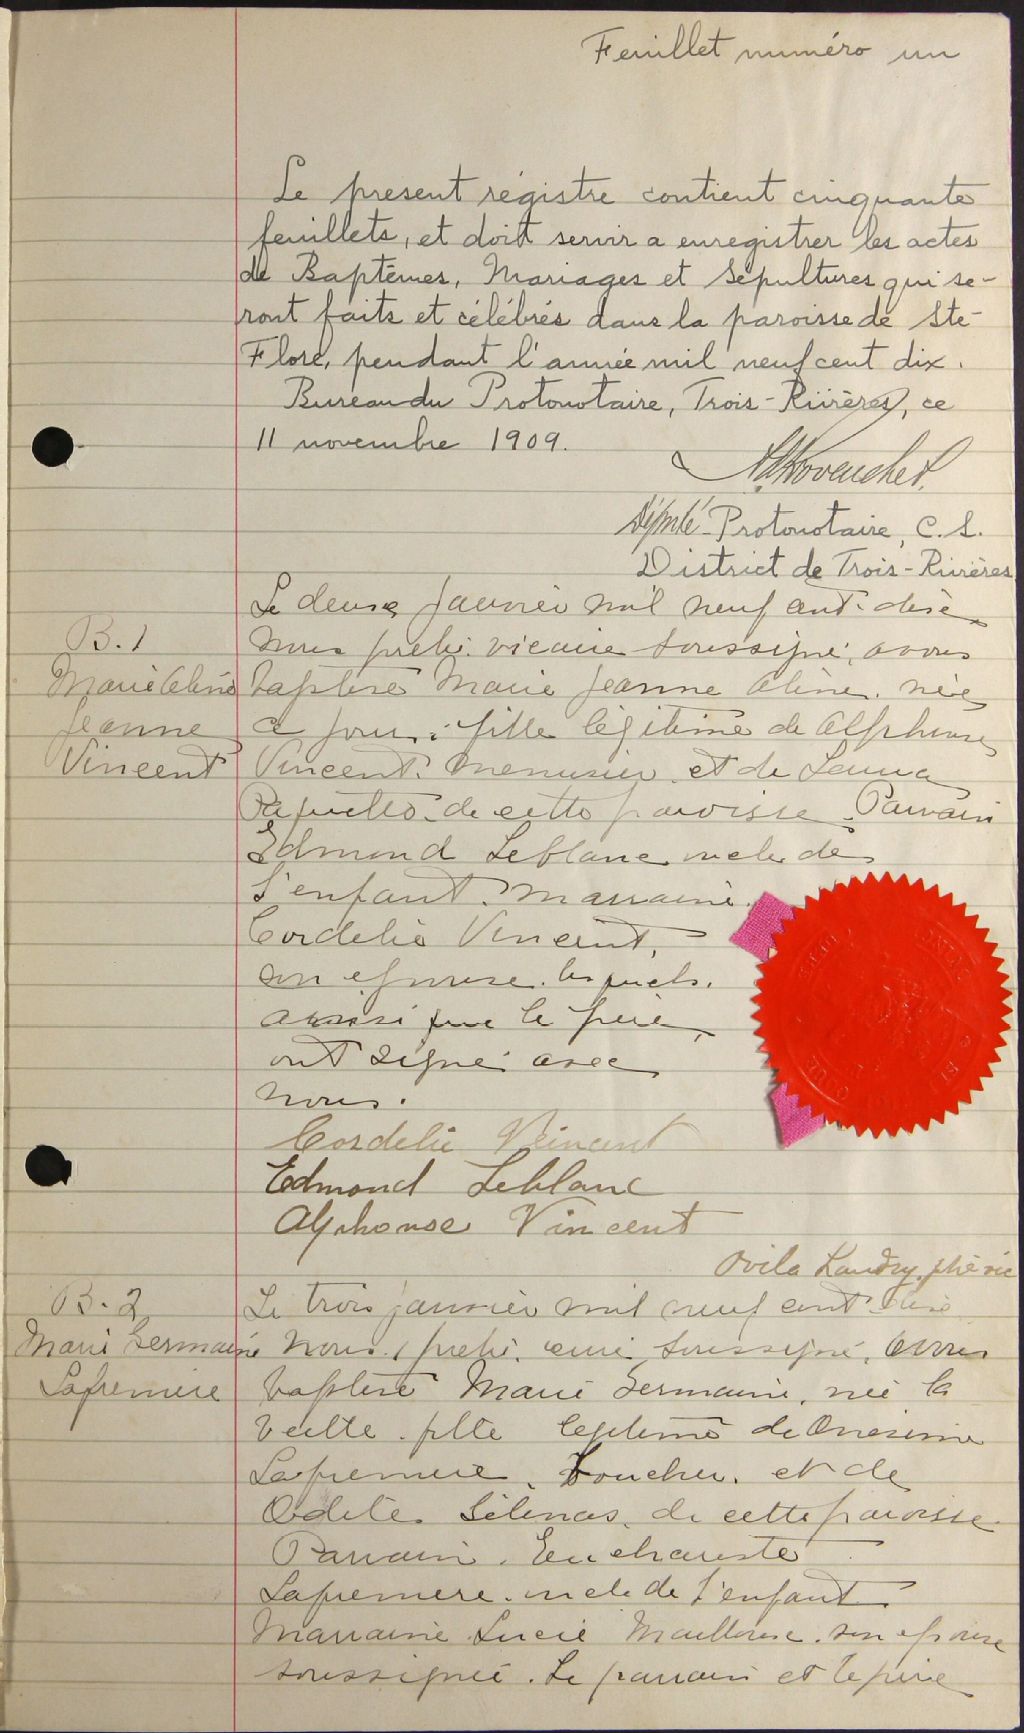 Feuillet numéro un
Le present régistre contient cinquante
feuillets, et doit servir a enregistrer les actes
de Baptêmes, Mariages et Sépultures qui se-
ront faits et célébrés dans la paroisse de Ste-
Flore, pendant l'année mil neuf cent dix.
Bureau du Protonotaire, Trois-Rivières, ce
11 novembre 1909.
Député-Protonotaire, C. S.
District de Trois-Rivières
Le deux janvier mil neuf cent dix
B. 1
Marie Aline
Jeanne
Vincent
nous prêtre vicaire soussigné, avons
baptisé Marie Jeanne Aline, née
ce jour, fille légitime de Alphonse
Vincent, menuisier et de Laura
Paquette de cette paroisse. Parrain
Edmond Leblanc oncle de
l'enfant. Marraine
Cordelie Vincent,
son épouse lesquels,
ainsi que le père,
ont signé avec
nous.
Cordelie Vincent
Edmond Leblanc
Alphonse Vincent
Ovila Landry, ptre vic
B. 2
Marie Germaine
Lafreniere
Le trois janvier mil neuf cent dix
nous, prêtre, curé soussigné, avons
baptisé Marie Germaine, née la
veille, fille légitime de Onesime
Lafreniere, boucher, et de
Odile Gélinas, de cette paroisse.
Parrain, Euchariste
Lafreniere, oncle de l'enfant.
Marraine Lucie son épouse
soussignée. Le parrain et le père